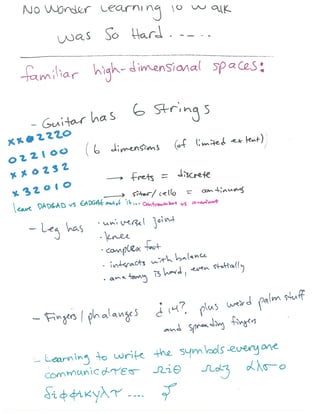 No Wonder Learning to Walk
Was So Hard.....
familiar high-dimensional spaces:
- Guitar has 6 Strings
xx02220
022100
xx0232
x32010
(6 dimensions (of limited extent)
→ frets = discrete
→ sitar/cello = continuous
leave DADGAD vs EADGBE out of it... Contravariant vs covariant
- Leg has
· universal joint
· knee
· complex foot
· interacts with balance
· anatomy is hard, even statically
- Fingers/phalanges ¿14?, plus weird palm stuff
and spreading fingers
- Learning to write the symbols everyone
communicατεσ
ηαζ αλσο
διφφικυλτ ....